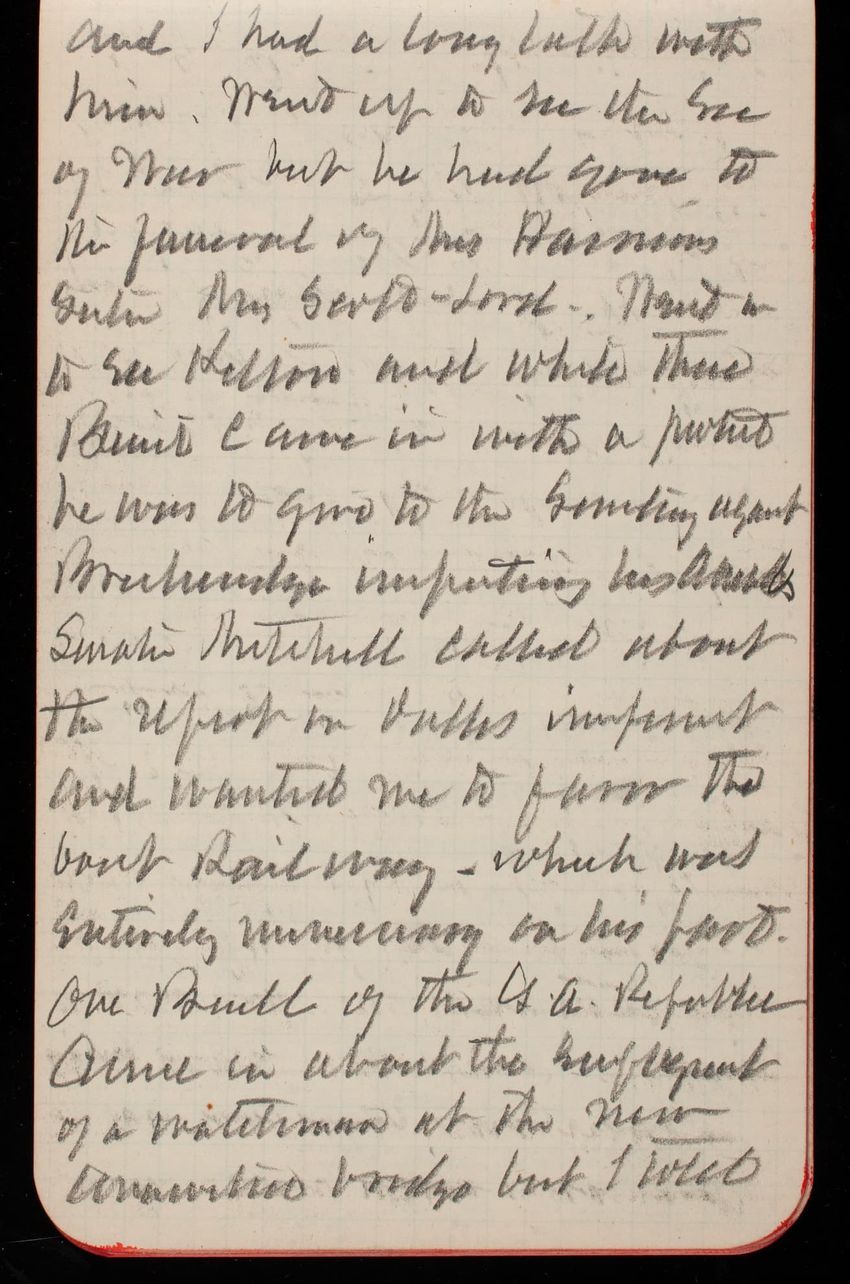 and I had a long talk with
him. Went up to see the Sec
of War but he had gone to
the funeral of Mrs Harrisons
Sister Mrs Scott-Lord-. Went in
to see Kelton and while there
Benit came in with a
he was to give to the agent
Breckenridge his
Senator Mitchell called about
the report on Dalles improvt
and wanted me to favor the
boat Railway - which was
Entirely unnecessary on his part.
One Buell of the G. A. Republic
Came in about the
of a watchman at the new
bridge but I told